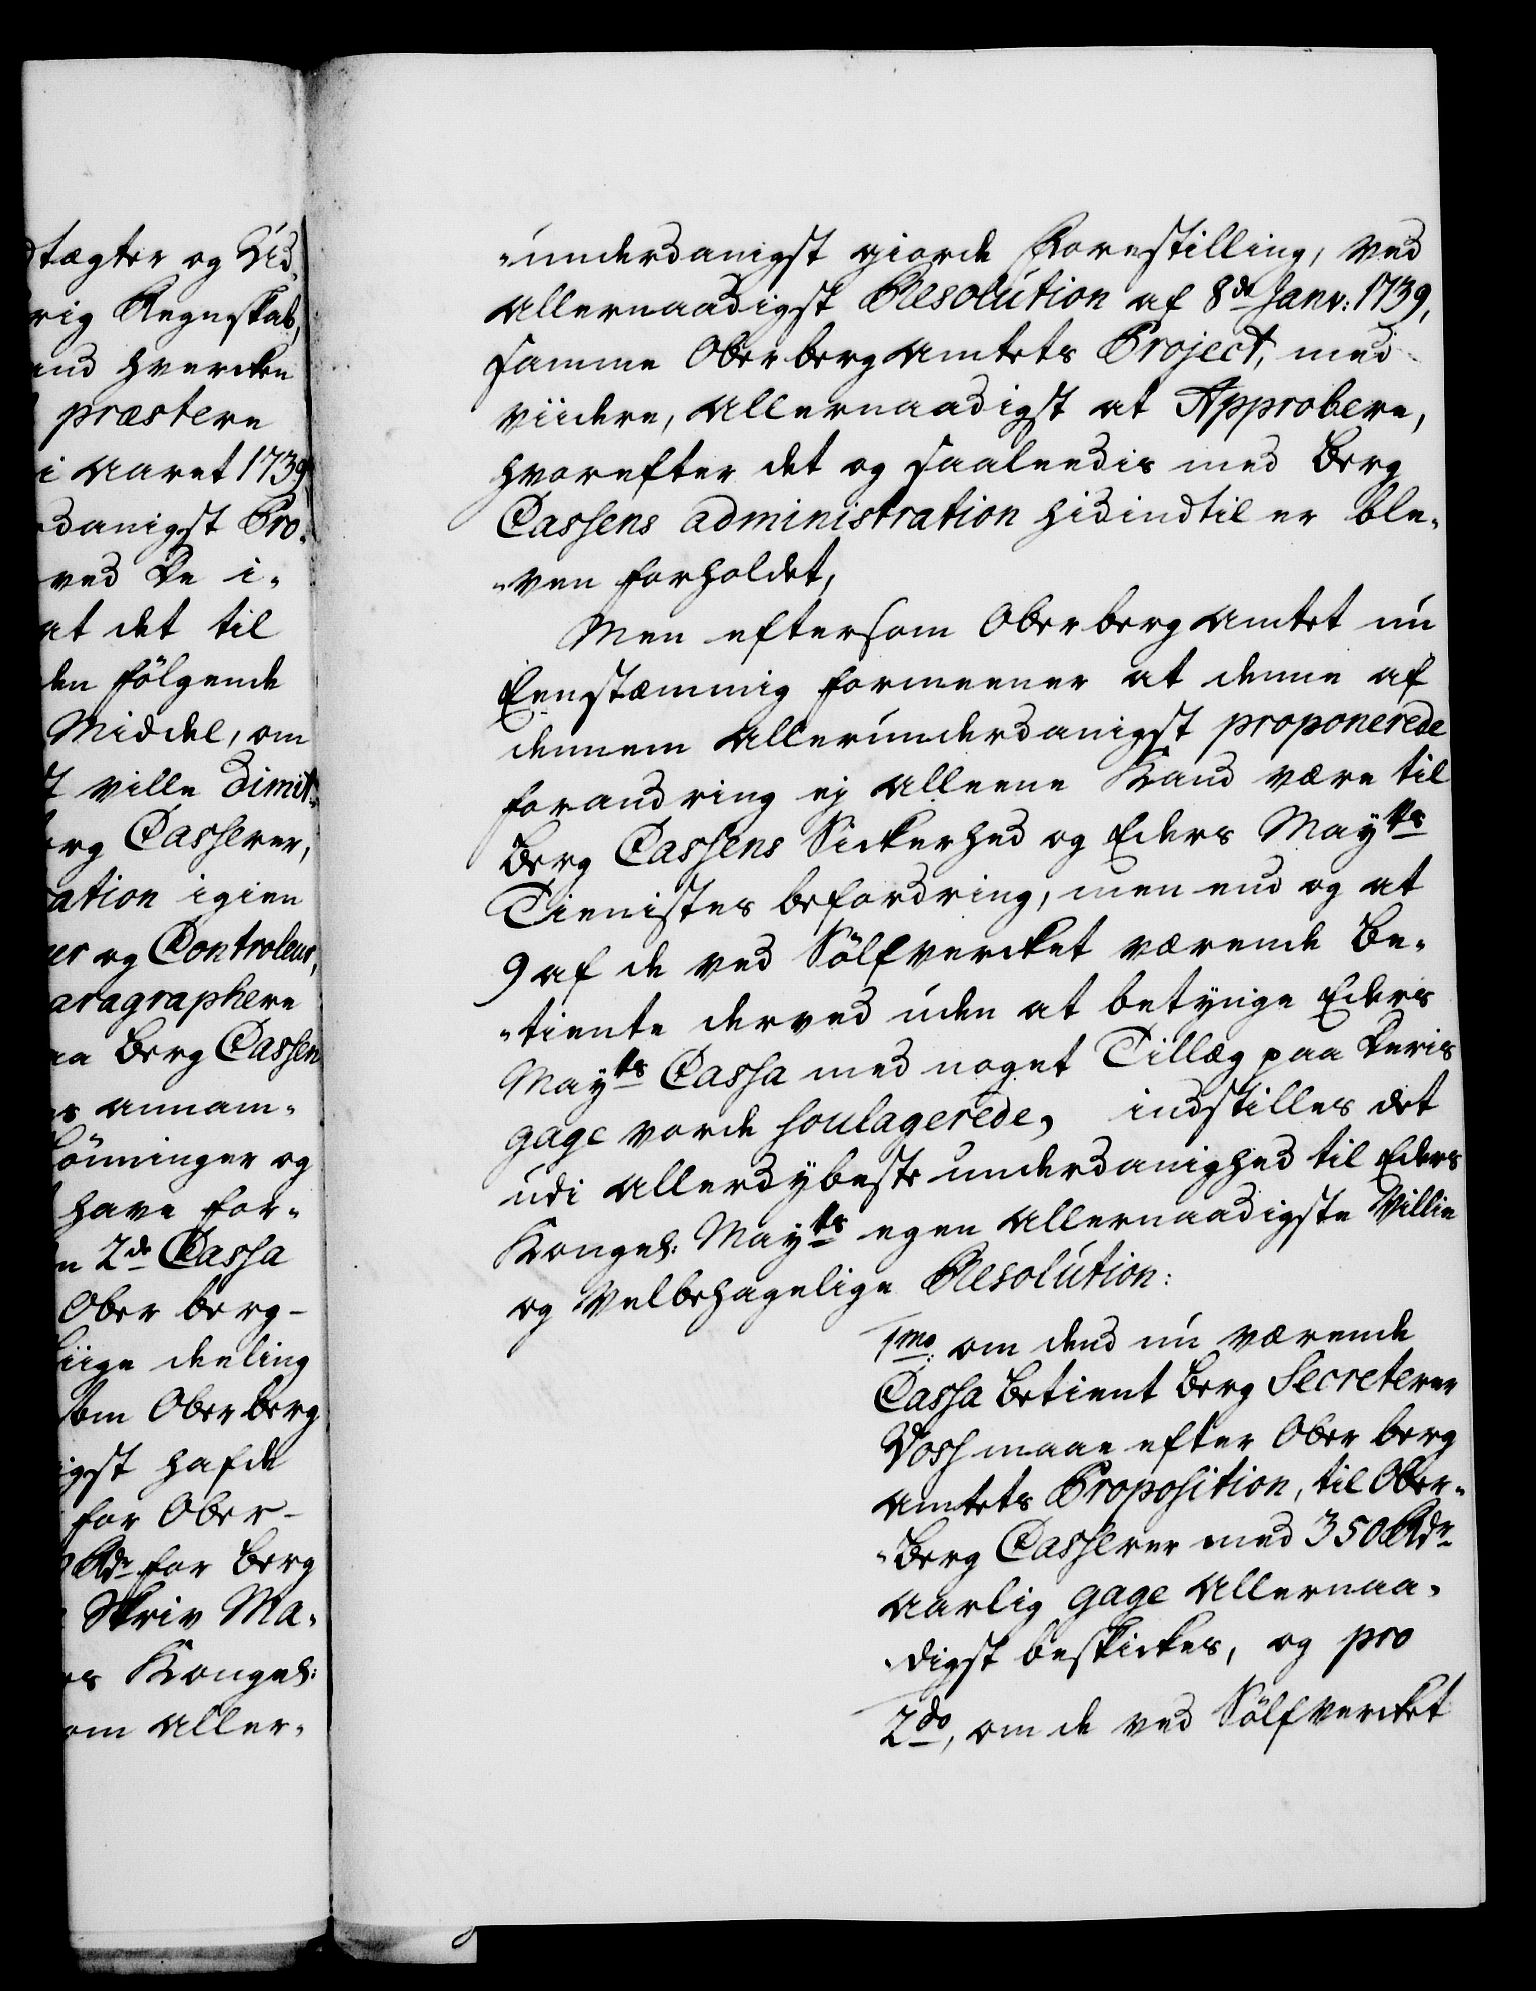 dtægter og Ud-
rig Regnskab,
and hvercken
præstere
i Aaret 1739
danigst Pro-
ved De i-
at det til
den fölgende
Middel, om
t ville Dimit-
erg Casserer,
ation igien
er og Controleur,
aragraphere
aa Berg Cassen
s annam-
lönninger og
have for-
n 2de Cassa
Ober berg-
liige deeling
som Ober berg
igst hafde
for Ober-
Rdr for Berg
Skriv Ma-
es Kongel:
om Aller-
-underdanigst giorde Forestilling, ved
Allernaadigst Resolution af 8de Janv: 1739,
samme Oberberg Amtets Project, med
viidere, Allernaadigst at Approbere,
hvorefter det og saaleedis med Berg
Cassens administration hidindtil er ble-
-ven forholdet,
Men eftersom Oberberg Amtet nu
Eenstæmmig formeener at denne af
dennem Allerunderdanigst proponerede
forandring ej alleene Kand være til
Berg Cassens Sickerhed og Eders Mayts
Tienistes befordring, men end og at
9 af de ved Sölfvercket værende Be-
-tiente derved uden at betynge Eders
Mayts Cassa med noget Tillæg paa Deris
gage vorde soulagerede, indstilles det
udi Allerdybeste underdanighed til Eders
Kongel: Mayts egen Allernaadigste Villie
og Velbehagelige Resolution:
1mo: om dend nu værende
Cassa Betient Berg Secreterer
Voss maae efter Ober berg
Amtets Proposition, til Ober-
-Berg Casserer med 350 Rdr
Aarlig gage Allernaa-
-digst beskickes, og pro
2do, om de ved Sölfvercket